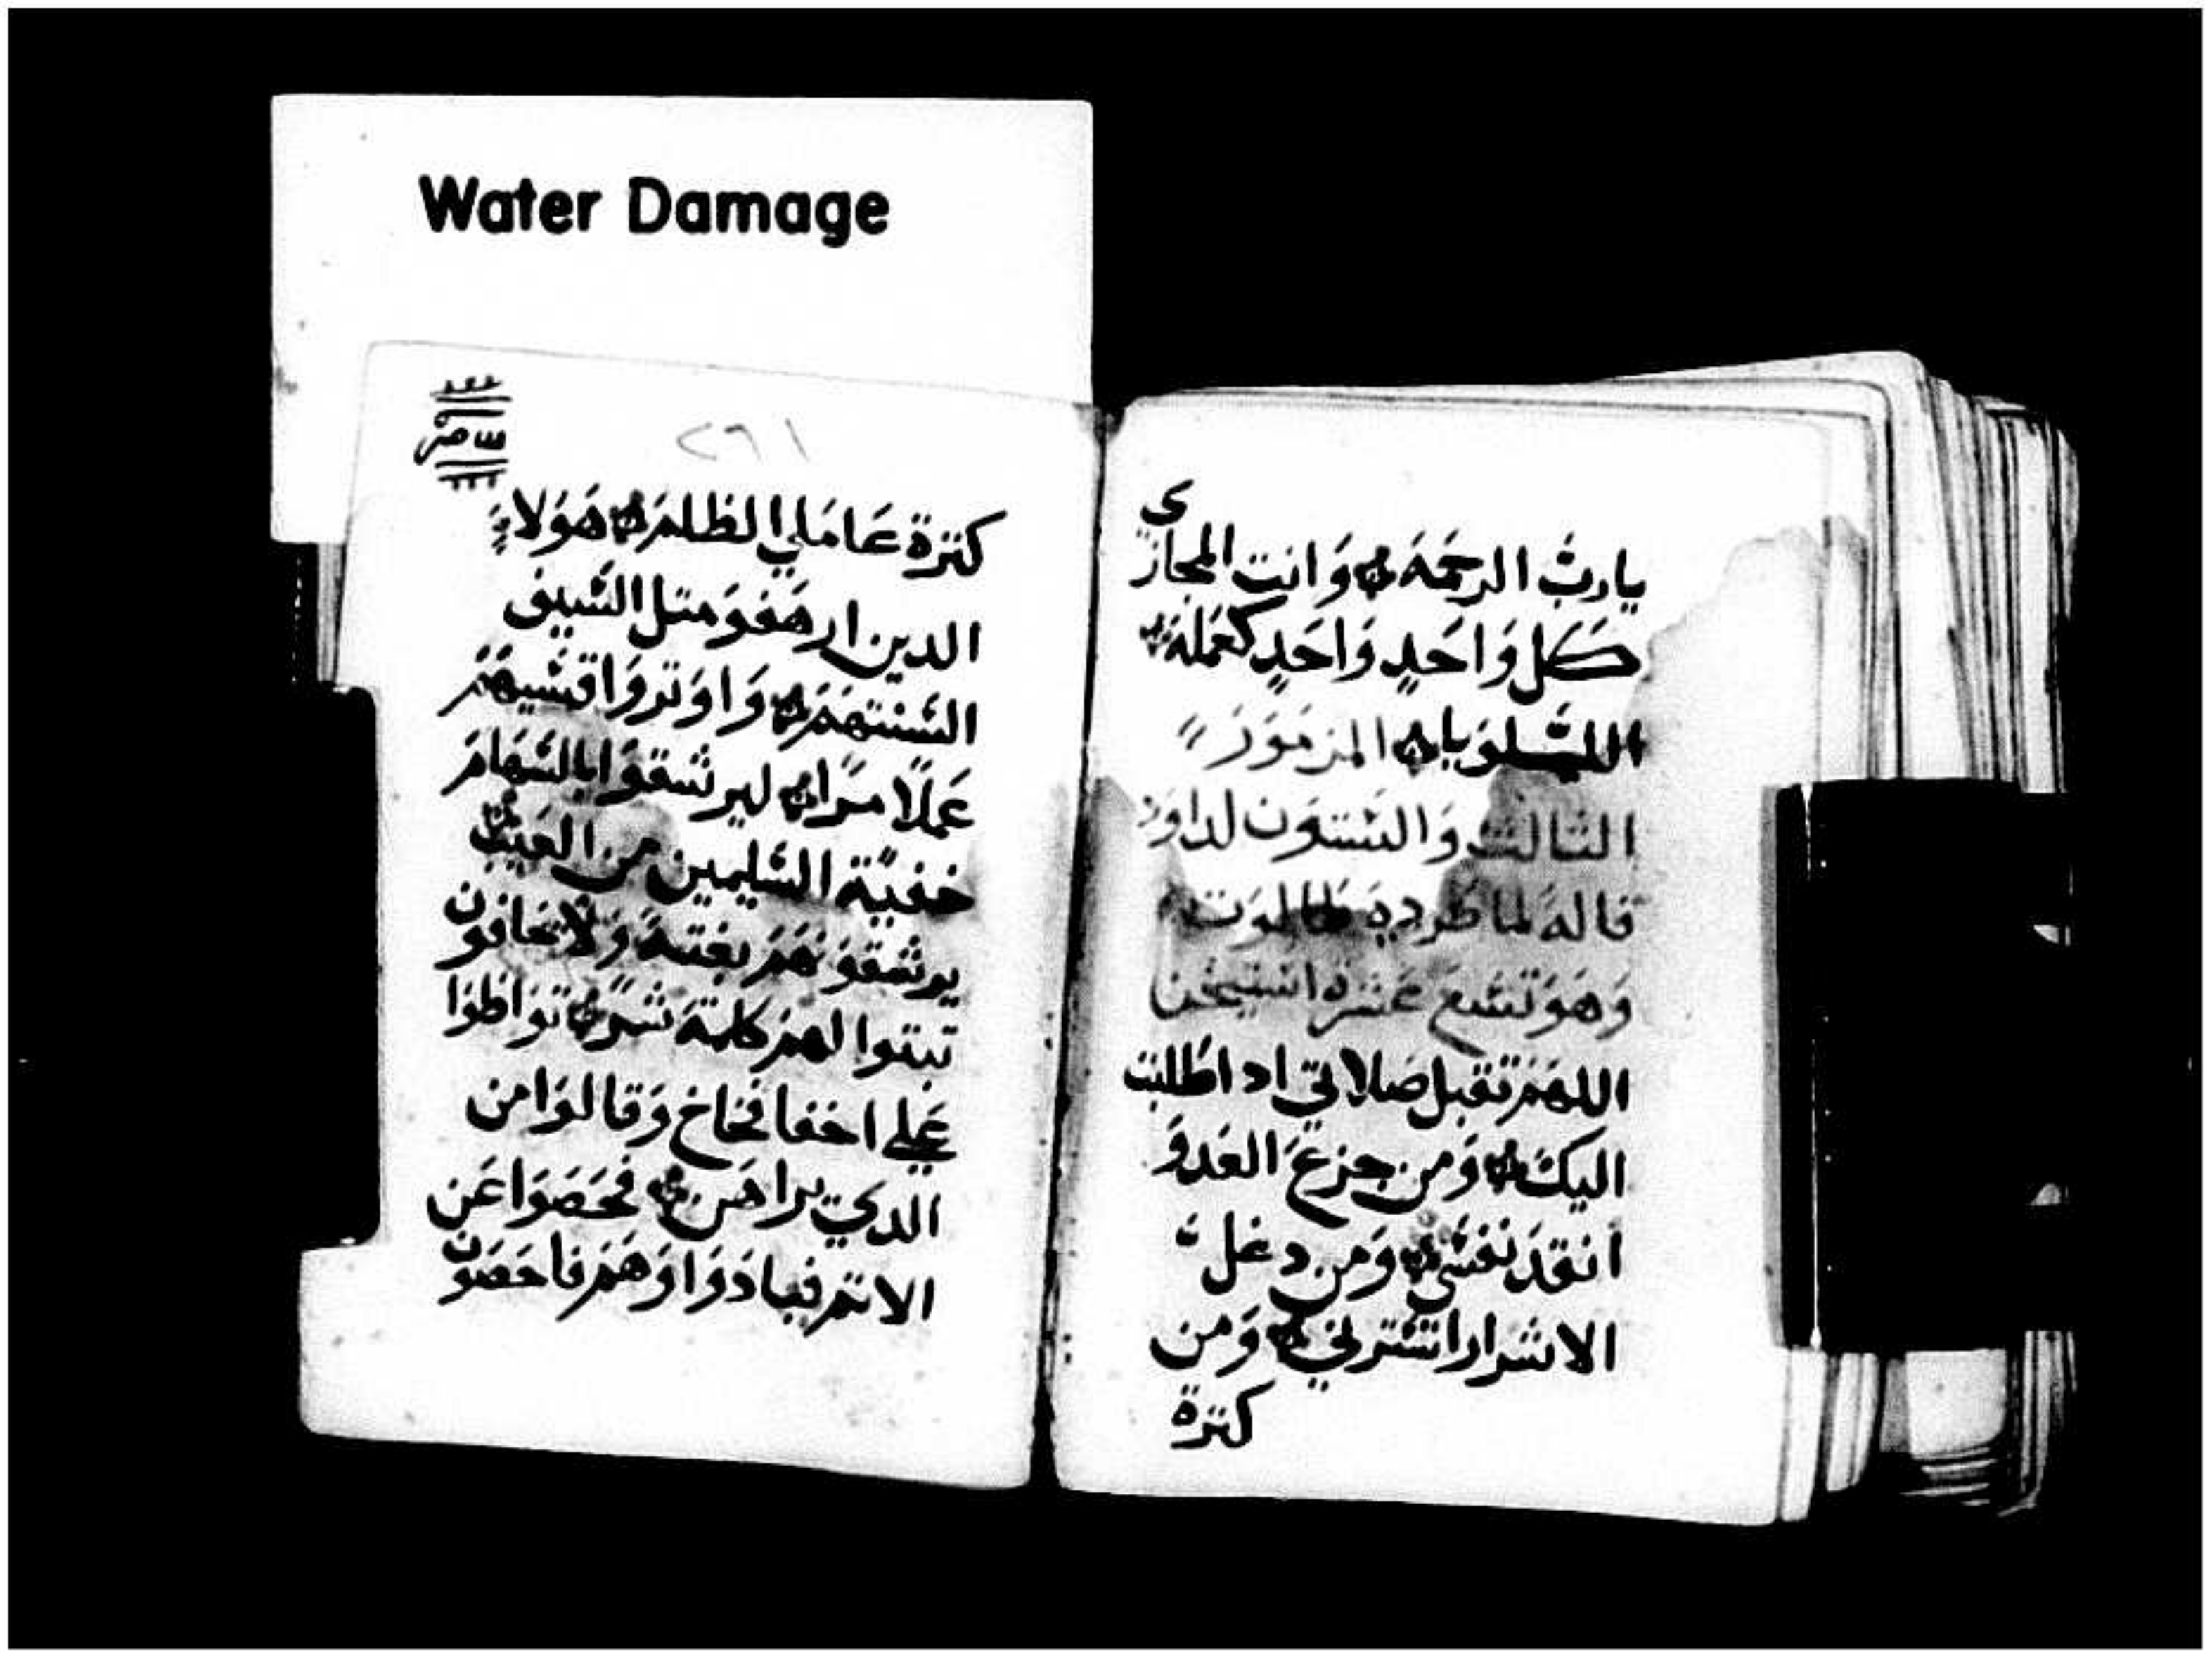 Water Damage
يارب الرحمة وانت المجازي
كل واحد واحد كعمله
الليلويا المزمور
التالت والستون لداود
قاله لما طرده طالوت
وهو تسع عشره استيخن
اللهم تقبل صلاتي اد اطلبت
اليك ومن جزع العدو
انقد نفسي ومن دغل
الاشرار استرني ومن
كترة
٢٦١
كترة عاملي الظلم هولاء
الدين ارهفو متل السيف
السنتهم واوترو اقسيهم
عملا مرا ليرشقوا بالسهام
خفية السليمين من العيب
يرشقونهم بغتة ولا يخافون
تبتوا لهم كلمة شر تواطوا
علي اخفا فخاخ وقالوا من
الدي يراهن فحصوا عن
الاتم فبادوا وهم فاحصون